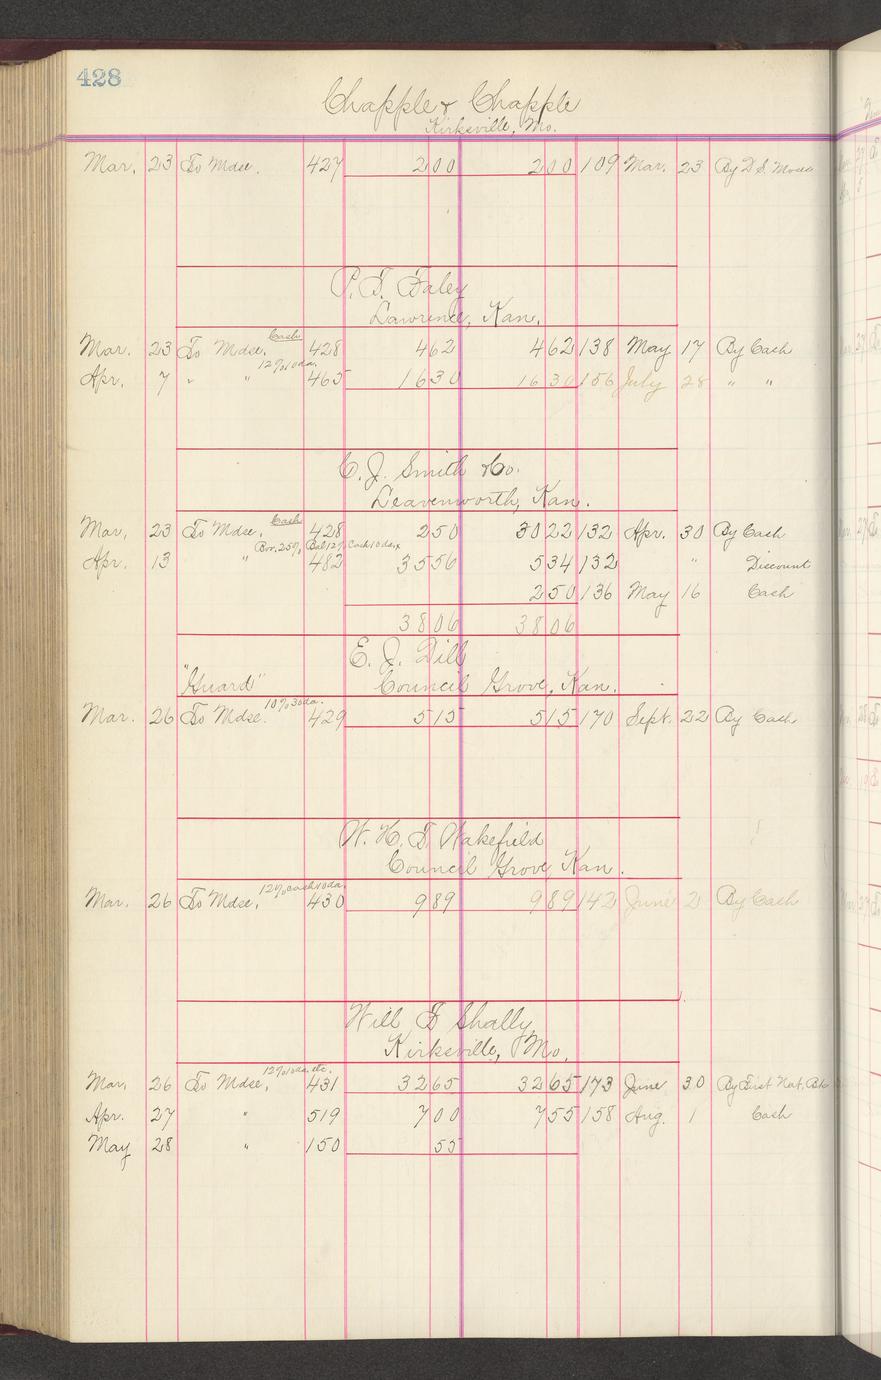 428
Chapple & Chapple
Kirksville, Mo.
Mar. 23 To Mdse. 427 2 00 2 00 109 Mar. 23 By D. S. Morse
P. T. Faley
Lawrence, Kan.
Cash
Mar. 23 To Mdse. 428 4 62 4 62 138 May 17 By Cash
12% 10 da.
Apr. 7 " " 465 16 30 16 30 156 July 28 " "
C. J. Smith & Co.
Leavenworth, Kan.
Cash
Mar. 23 To Mdse. 428 2 50 30 22 132 Apr. 30 By Cash
25% Bal 12% Cash 10 da
Apr. 13 " 482 35 56 5 34 132 " Discount
2 50 136 May 16 Cash
38 06 38 06
E. J. Dill
"Guard" Council Grove, Kan.
10% 30 da.
Mar. 26 To Mdse. 429 5 15 5 15 170 Sept. 22 By Cash
W. H. T. Wakefield
Council Grove, Kan.
12% cash 10 da.
Mar. 26 To Mdse. 430 9 89 9 89 142 June 2 By Cash
Will T Shally
Kirksville, Mo.
12% 10 da. etc.
Mar. 26 To Mdse. 431 32 65 32 65 173 June 30 By First Nat. Bk
Apr. 27 " 519 7 00 7 55 158 Aug. 1 Cash
May 28 " 150 55